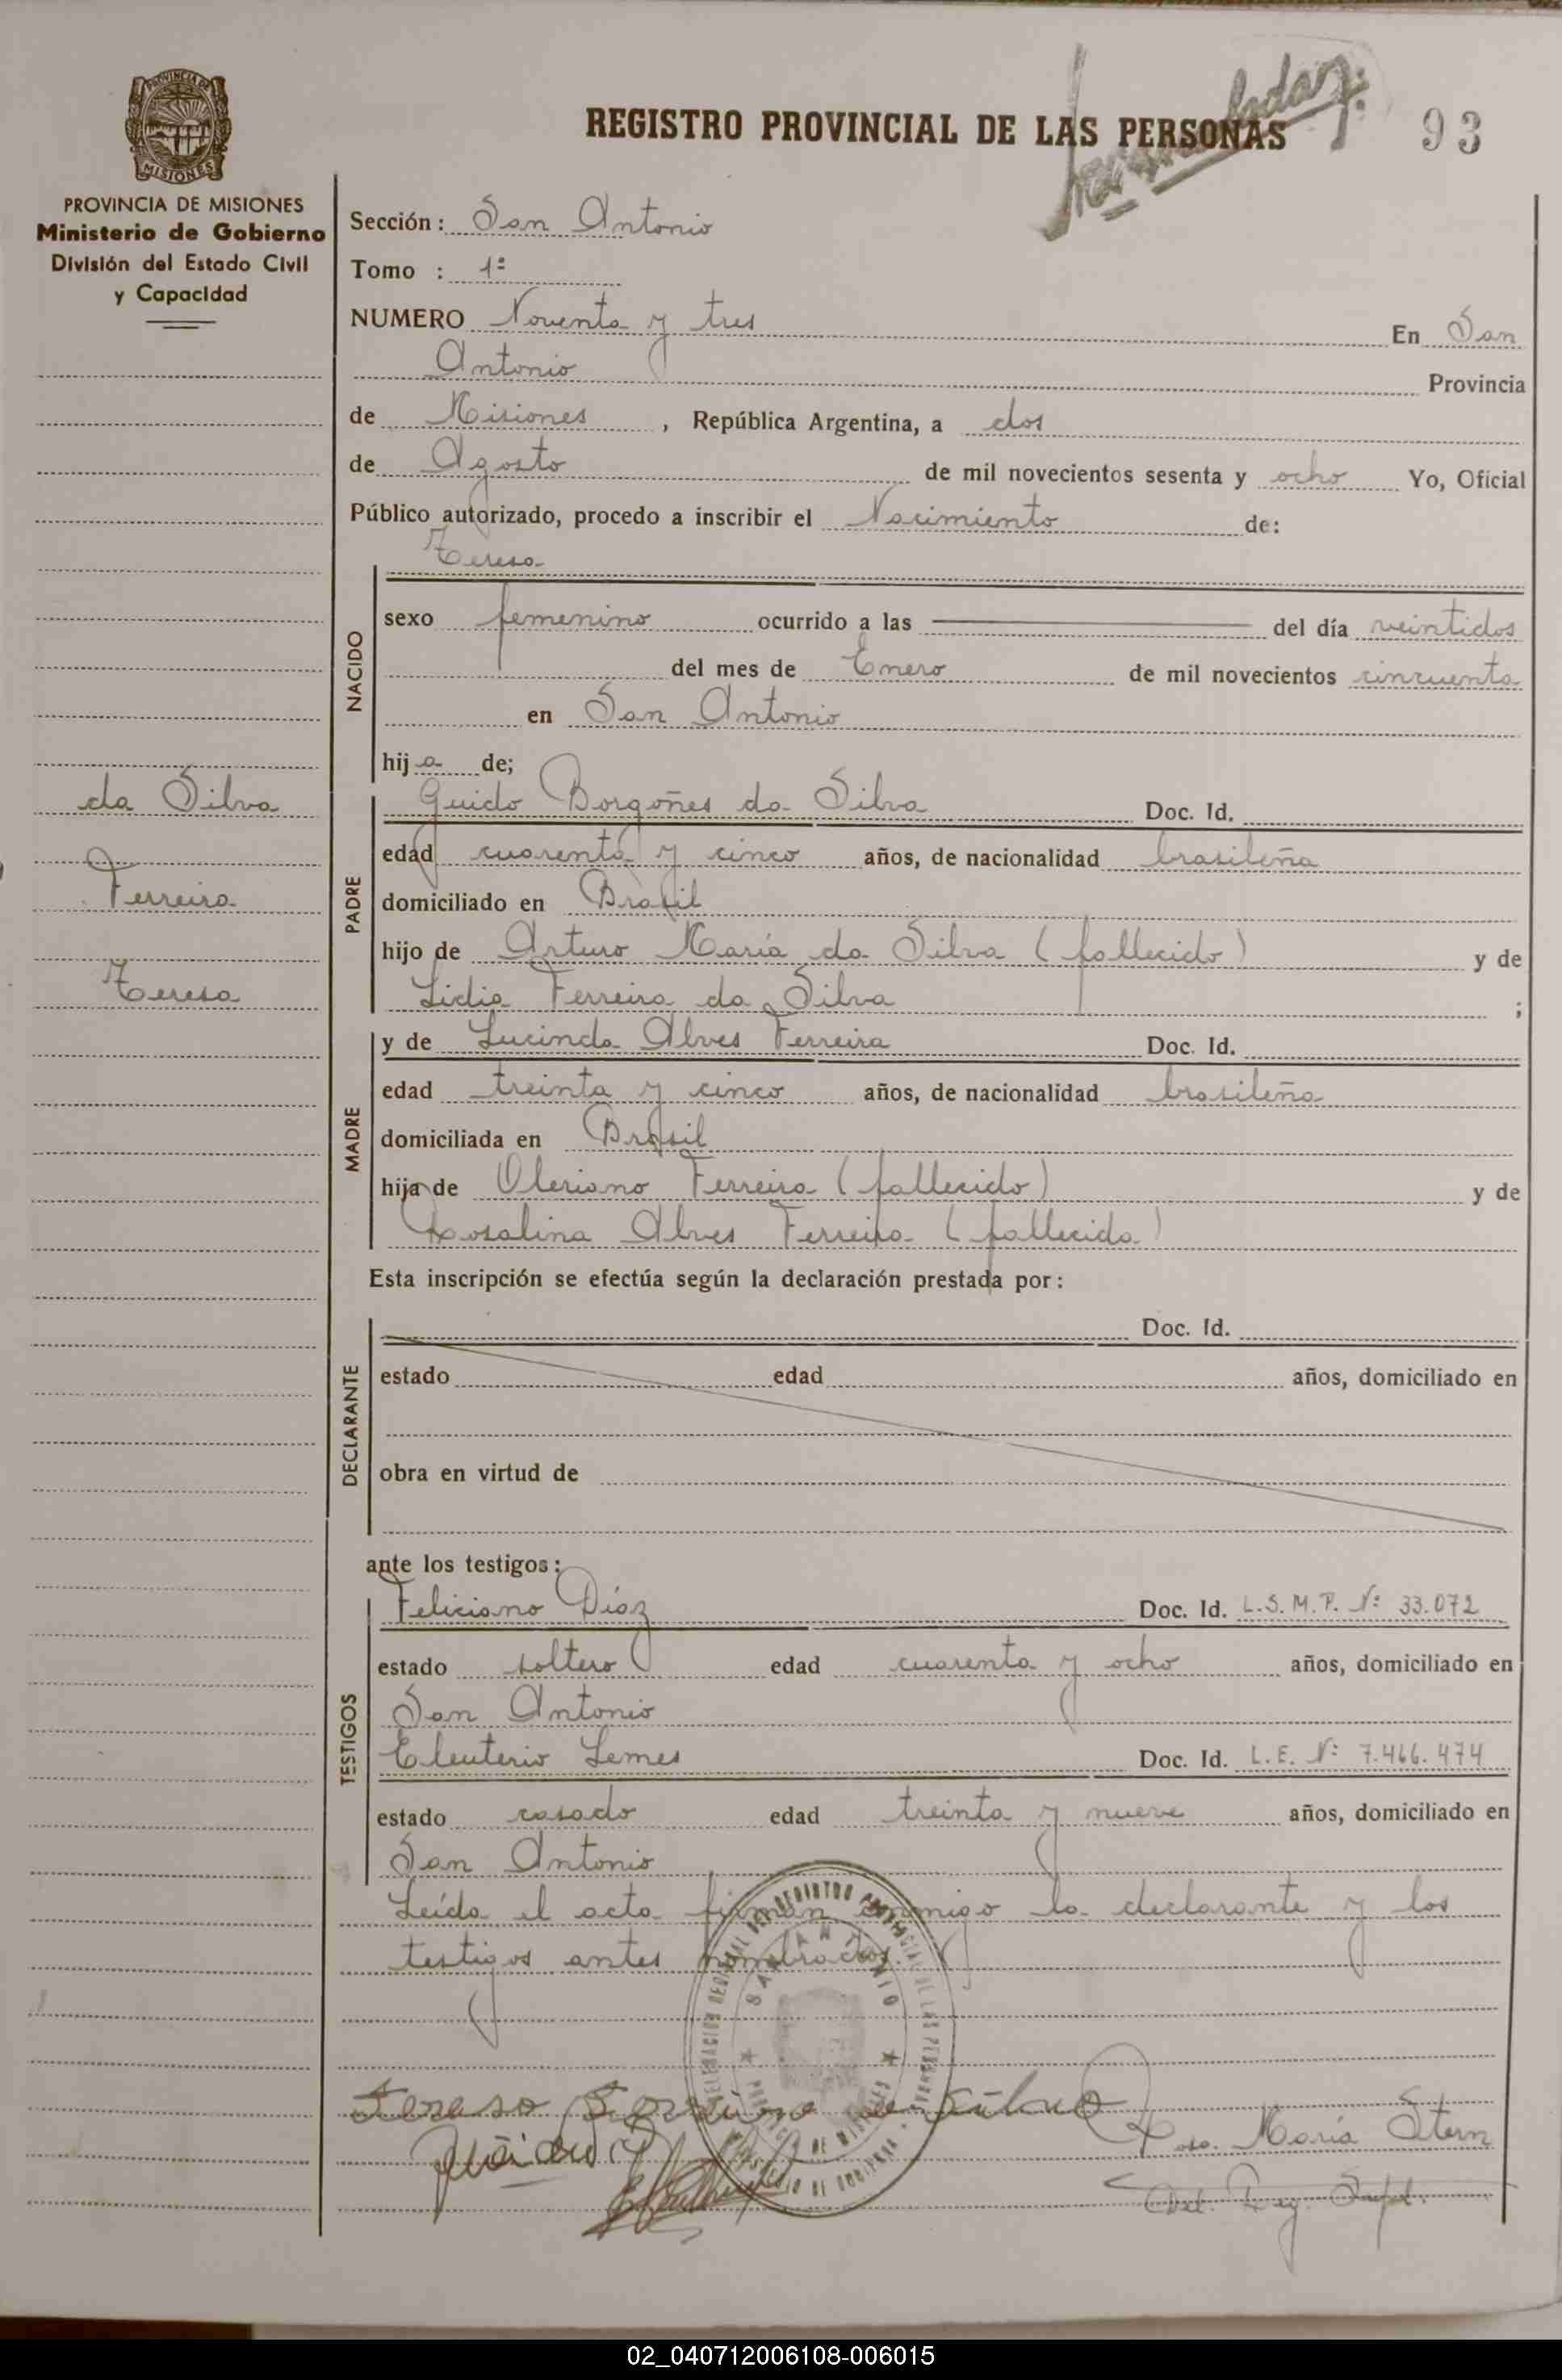 REGISTRO PROVINCIAL DE LAS PERSONAS
93
PROVINCIA DE MISIONES
PROVINCIA DE MISIONES
Ministerio de Gobierno
División del Estado Civil
y Capacidad
Sección: San Antonio
Tomo : 1º
NUMERO Noventa y tres En San
Antonio Provincia
de Misiones, República Argentina, a dos
de Agosto de mil novecientos sesenta y ocho Yo, Oficial
Público autorizado, procedo a inscribir el Nacimiento de:
Teresa
NACIDO
sexo femenino ocurrido a las del día veintidos
del mes de Enero de mil novecientos cincuenta
en San Antonio
hija de;
da Silva
Ferreira
Teresa
PADRE
Guido Borgoñes da Silva Doc. Id.
edad cuarenta y cinco años, de nacionalidad brasileña
domiciliado en Brasil
hijo de Arturo María da Silva (fallecido) y de
Lidia Ferreira da Silva ;
MADRE
y de Lucinda Alves Ferreira Doc. Id.
edad treinta y cinco años, de nacionalidad brasileña
domiciliada en Brasil
hija de Oleriano Ferreira (fallecido) y de
Rosalina Alves Ferreira (fallecida)
Esta inscripción se efectúa según la declaración prestada por:
DECLARANTE
Doc. Id.
estado edad años, domiciliado en
obra en virtud de
ante los testigos:
TESTIGOS
Feliciano Díaz Doc. Id. L.S.M.P. Nº 33.072
estado soltero edad cuarenta y ocho años, domiciliado en
San Antonio
Eleuterio Lemes Doc. Id. L.E. Nº 7.466.474
estado casado edad treinta y nueve años, domiciliado en
San Antonio
Leída el acta firman conmigo la declarante y los
testigos antes nombrados.
SAN ANTONIO
PROVINCIA DE MISIONES
Rosa María Stern
Del. Reg. Supl.
02_040712006108-006015